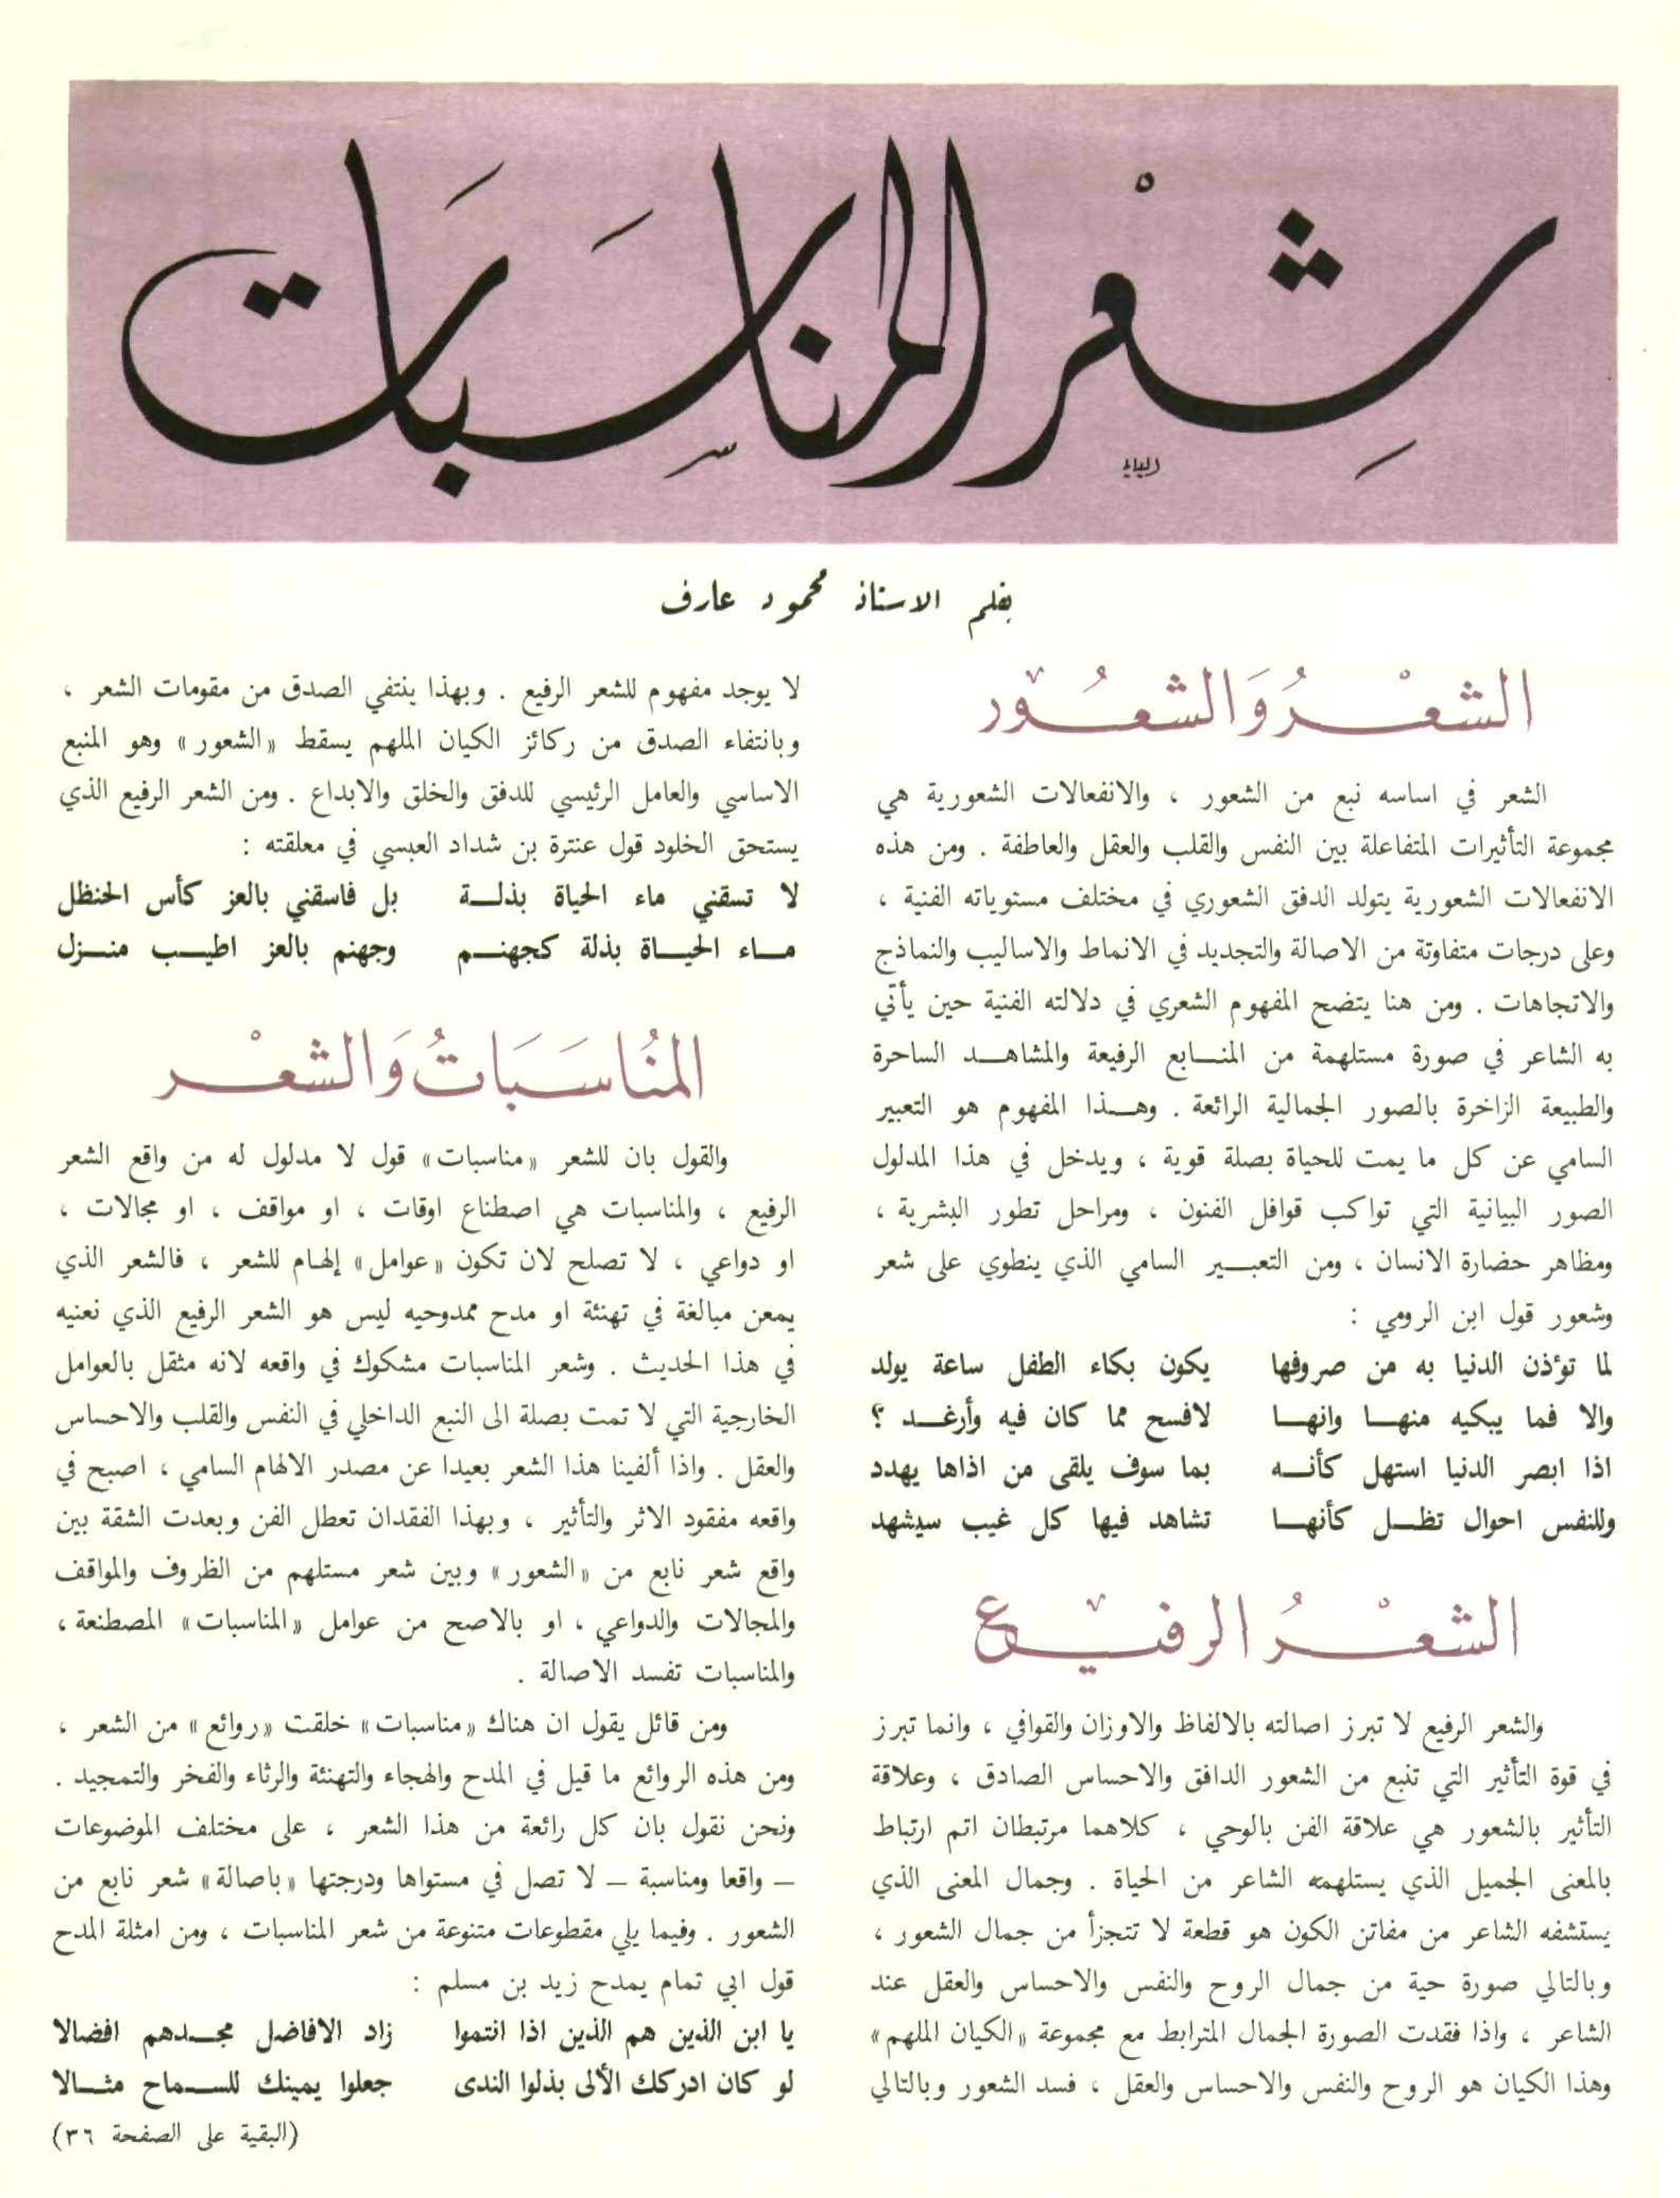 شِعْر المناسَبَات
بقلم الاستاذ محمود عارف
الشعْرُ وَالشعُور
الشعر في اساسه نبع من الشعور ، والانفعالات الشعورية هي
مجموعة التأثيرات المتفاعلة بين النفس والقلب والعقل والعاطفة . ومن هذه
الانفعالات الشعورية يتولد الدفق الشعوري في مختلف مستوياته الفنية ،
وعلى درجات متفاوتة من الاصالة والتجديد في الانماط والاساليب والنماذج
والاتجاهات . ومن هنا يتضح المفهوم الشعري في دلالته الفنية حين يأتي
به الشاعر في صورة مستلهمة من المنابع الرفيعة والمشاهد الساحرة
والطبيعة الزاخرة بالصور الجمالية الرائعة . وهذا المفهوم هو التعبير
السامي عن كل ما يمت للحياة بصلة قوية ، ويدخل في هذا المدلول
الصور البيانية التي تواكب قوافل الفنون ، ومراحل تطور البشرية ،
ومظاهر حضارة الانسان ، ومن التعبير السامي الذي ينطوي على شعر
وشعور قول ابن الرومي :
لما تؤذن الدنيا به من صروفها يكون بكاء الطفل ساعة يولد
والا فما يبكيه منها وانها لافسح مما كان فيه وأرغد ؟
اذا ابصر الدنيا استهل كأنه بما سوف يلقى من اذاها يهدد
وللنفس احوال تظل كأنها تشاهد فيها كل غيب سيشهد
الشعْرُ الرفيْع
والشعر الرفيع لا تبرز اصالته بالالفاظ والاوزان والقوافي ، وانما تبرز
في قوة التأثير التي تنبع من الشعور الدافق والاحساس الصادق ، وعلاقة
التأثير بالشعور هي علاقة الفن بالوحي ، كلاهما مرتبطان اتم ارتباط
بالمعنى الجميل الذي يستلهمه الشاعر من الحياة . وجمال المعنى الذي
يستشفه الشاعر من مفاتن الكون هو قطعة لا تتجزأ من جمال الشعور ،
وبالتالي صورة حية من جمال الروح والنفس والاحساس والعقل عند
الشاعر ، واذا فقدت الصورة الجمال المترابط مع مجموعة «الكيان الملهم»
وهذا الكيان هو الروح والنفس والاحساس والعقل ، فسد الشعور وبالتالي
لا يوجد مفهوم للشعر الرفيع . وبهذا ينتفي الصدق من مقومات الشعر ،
وبانتفاء الصدق من ركائز الكيان الملهم يسقط «الشعور» وهو المنبع
الاساسي والعامل الرئيسي للدفق والخلق والابداع . ومن الشعر الرفيع الذي
يستحق الخلود قول عنترة بن شداد العبسي في معلقته :
لا تسقني ماء الحياة بذلة بل فاسقني بالعز كأس الحنظل
ماء الحياة بذلة كجهنم وجهنم بالعز اطيب منزل
المنُاسَبَاتُ وَالشعْر
والقول بان للشعر «مناسبات» قول لا مدلول له من واقع الشعر
الرفيع ، والمناسبات هي اصطناع اوقات ، او مواقف ، او مجالات ،
او دواعي ، لا تصلح لان تكون «عوامل» إلهام للشعر ، فالشعر الذي
يمعن مبالغة في تهنئة او مدح ممدوحيه ليس هو الشعر الرفيع الذي نعنيه
في هذا الحديث . وشعر المناسبات مشكوك في واقعه لانه مثقل بالعوامل
الخارجية التي لا تمت بصلة الى النبع الداخلي في النفس والقلب والاحساس
والعقل . واذا ألفينا هذا الشعر بعيدا عن مصدر الالهام السامي ، اصبح في
واقعه مفقود الاثر والتأثير ، وبهذا الفقدان تعطل الفن وبعدت الشقة بين
واقع شعر نابع من «الشعور» وبين شعر مستلهم من الظروف والمواقف
والمجالات والدواعي ، او بالاصح من عوامل «المناسبات» المصطنعة ،
والمناسبات تفسد الاصالة .
ومن قائل يقول ان هناك «مناسبات» خلقت «روائع» من الشعر ،
ومن هذه الروائع ما قيل في المدح والهجاء والتهنئة والرثاء والفخر والتمجيد .
ونحن نقول بان كل رائعة من هذا الشعر ، على مختلف الموضوعات
– واقعا ومناسبة – لا تصل في مستواها ودرجتها «باصالة» شعر نابع من
الشعور . وفيما يلي مقطوعات متنوعة من شعر المناسبات ، ومن امثلة المدح
قول ابي تمام يمدح زيد بن مسلم :
يا ابن الذين هم الذين اذا انتموا زاد الافاضل مجدهم افضالا
لو كان ادركك الألى بذلوا الندى جعلوا يمينك للسماح مثالا
(البقية على الصفحة ٣٦)